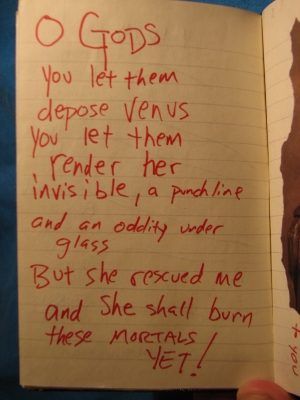 O GODS
You let them
depose Venus
You let them
render her
invisible, a punchline
and an oddity under
glass
But she rescued me
and She shall burn
these MORTALS
YET!
+ you